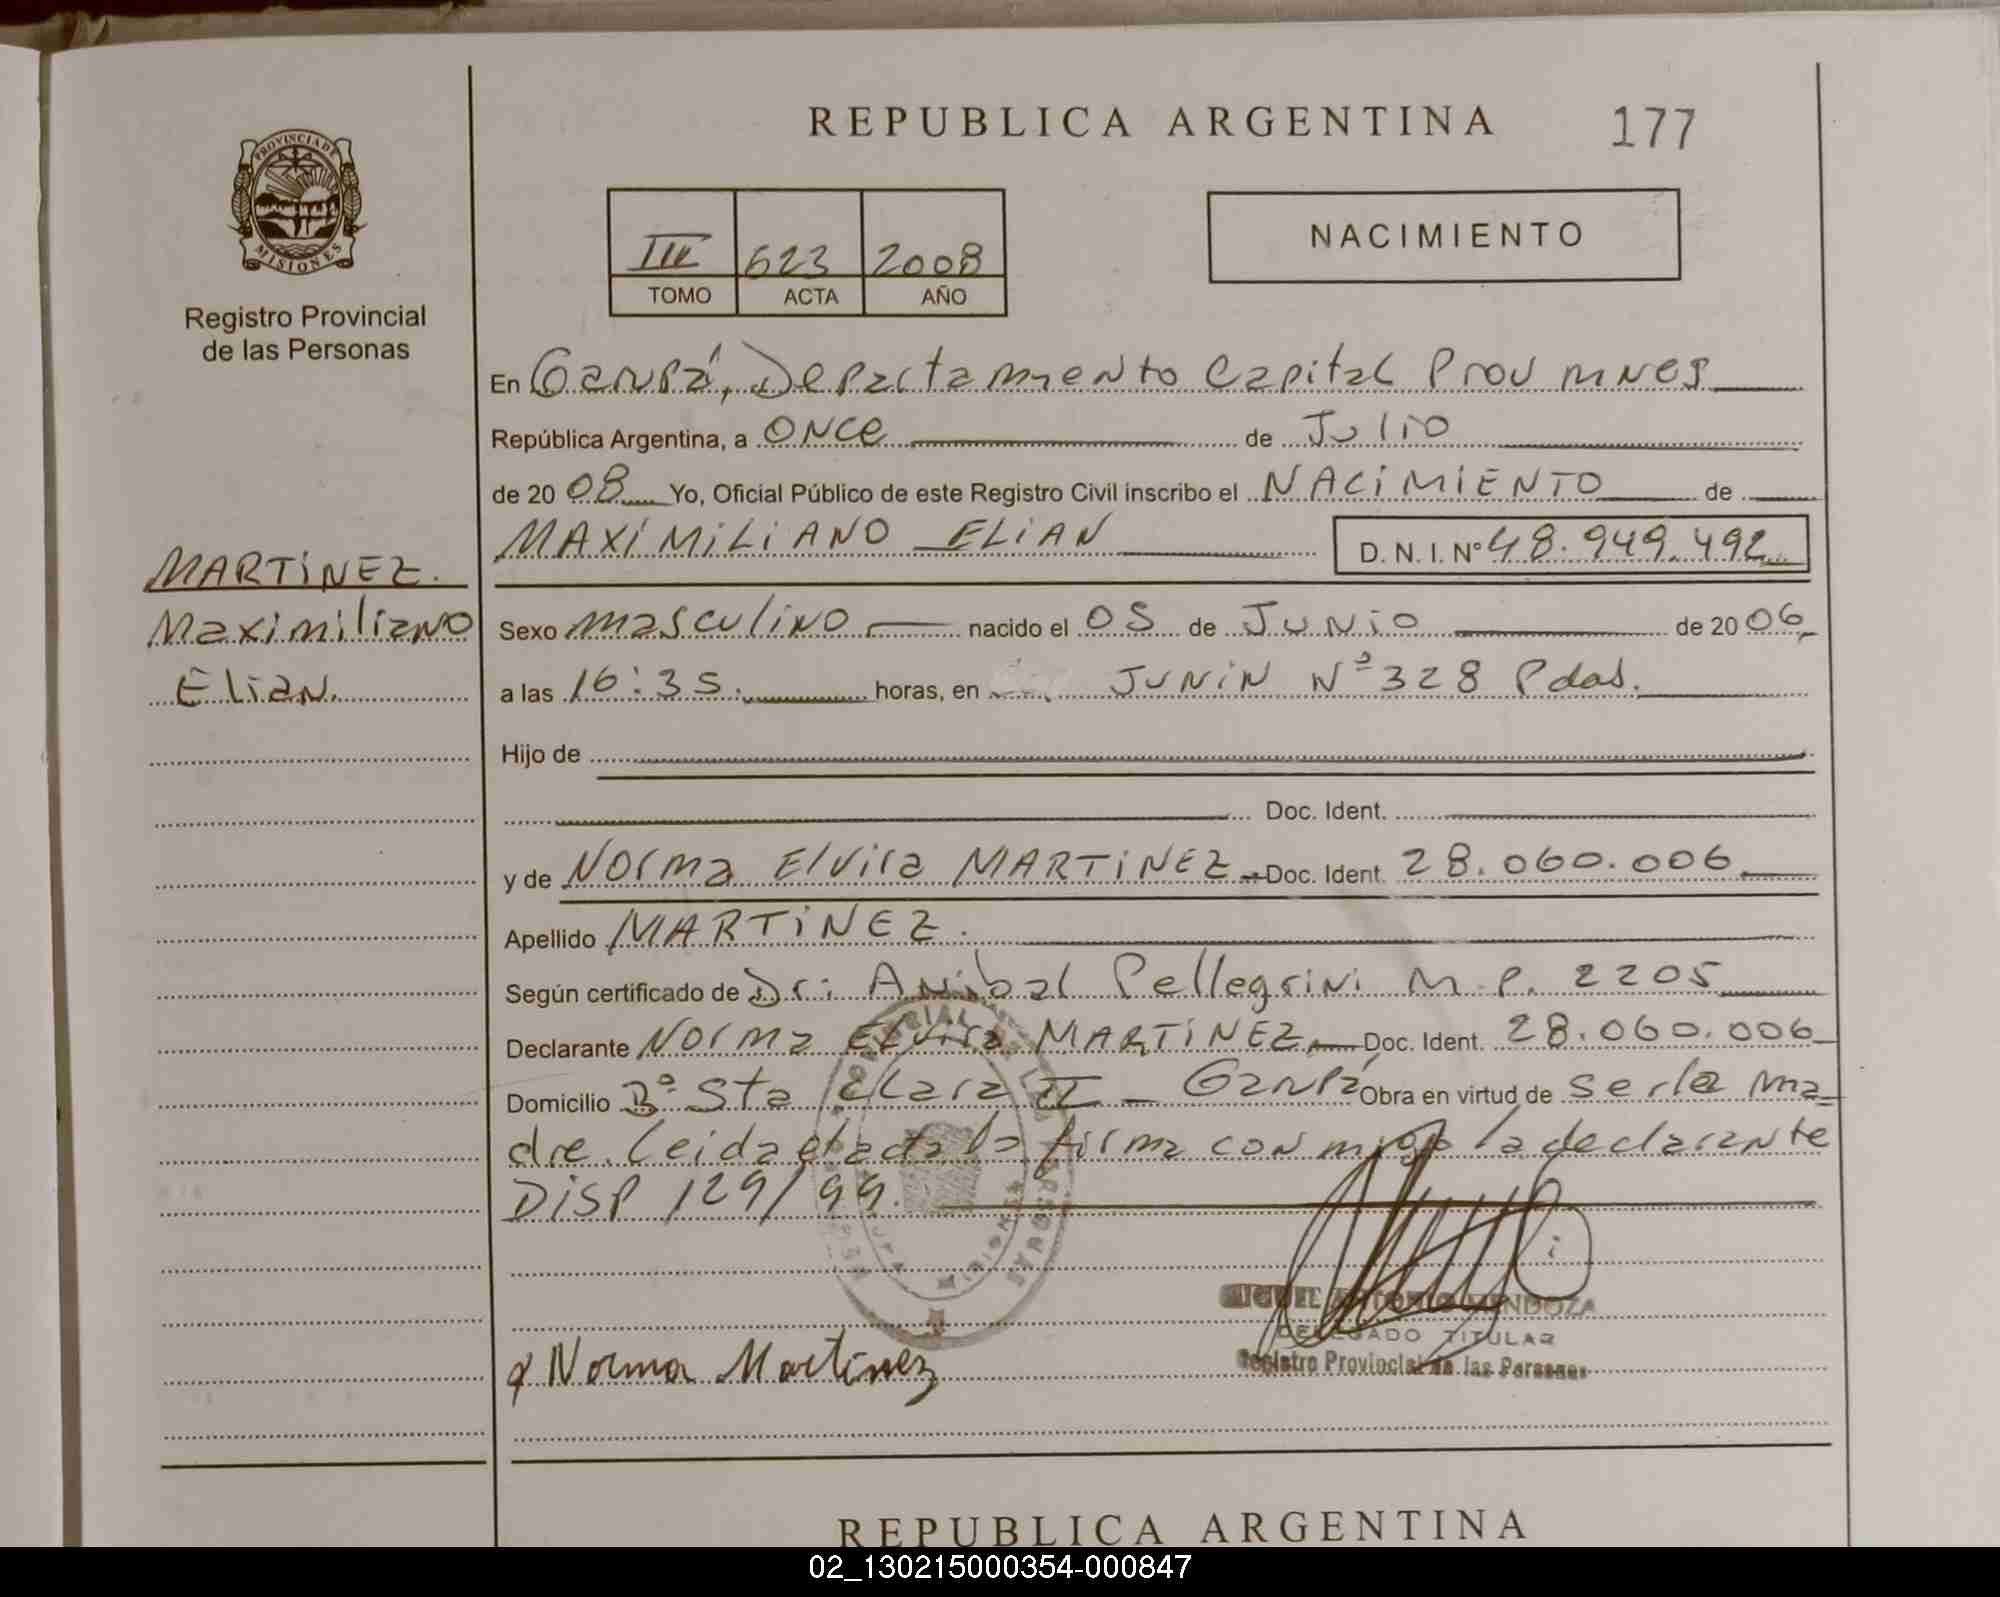 REPUBLICA ARGENTINA
177
PROVINCIA DE
MISIONES
Registro Provincial
de las Personas
III 623 2008
TOMO ACTA AÑO
NACIMIENTO
En Garupá, Departamento Capital Prov mnes
República Argentina, a once de Julio
de 20 08 Yo, Oficial Público de este Registro Civil inscribo el NACIMIENTO de
MAXIMILIANO ELIAN D. N. I. Nº 48.949.492
MARTINEZ.
Maximiliano
Elian.
Sexo masculino nacido el 05 de Junio de 20 06
a las 16:35. horas, en JUNIN Nº 328 Pdas.
Hijo de
Doc. Ident.
y de Norma Elvira MARTINEZ Doc. Ident. 28.060.006
Apellido MARTINEZ.
Según certificado de Dr: Anibal Pellegrini M.P. 2205
Declarante Norma Elvira MARTINEZ Doc. Ident. 28.060.006
Domicilio Bº Sta Clara II - Garupá Obra en virtud de ser la ma
dre. Leida el acta la firma conmigo la declarante
DISP 129/99.
MIGUEL ANTONIO MENDOZA
DELEGADO TITULAR
Registro Provincial de las Personas
x Norma Martinez
REPUBLICA ARGENTINA
02_130215000354-000847